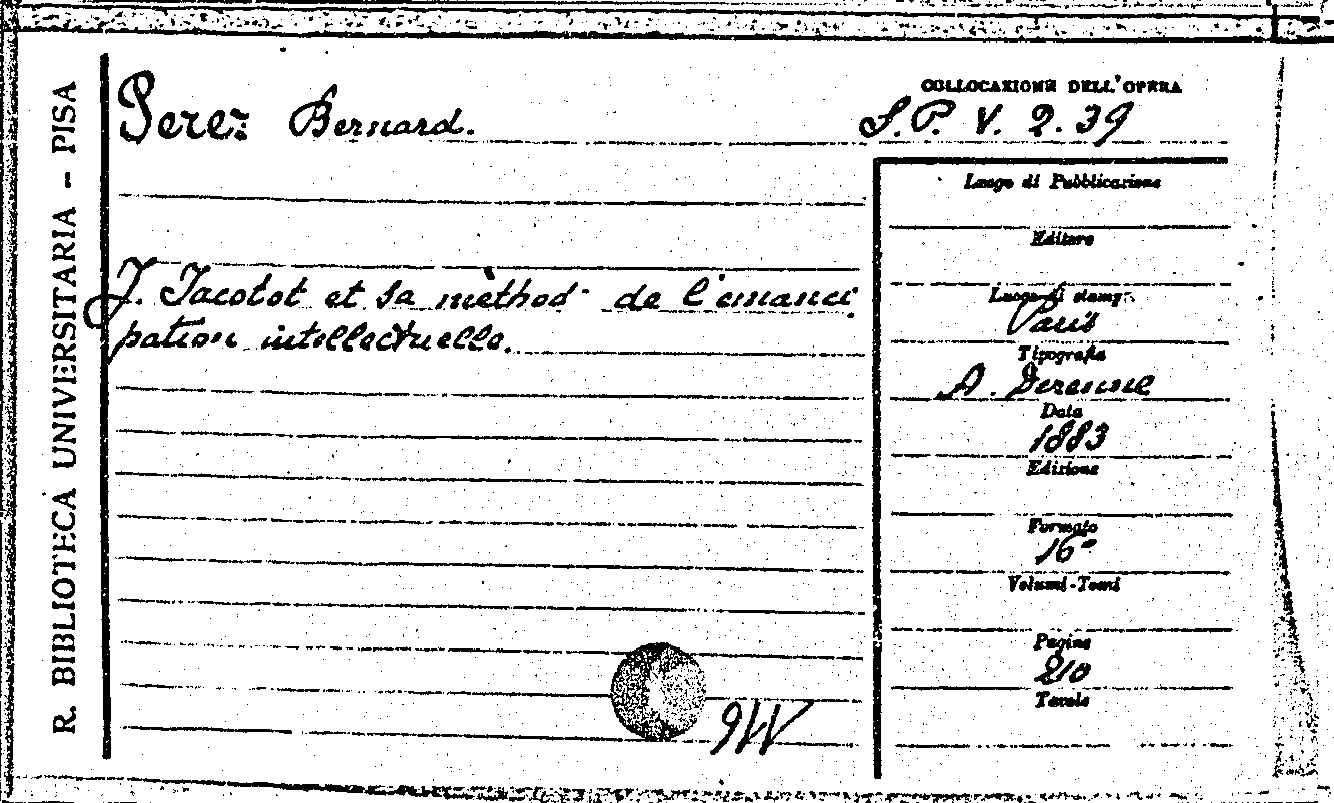 R. BIBLIOTECA UNIVERSITARIA - PISA
Perez Bernard.
COLLOCAZIONE DELL'OPERA
S.P. V. 2.39
Luogo di Pubblicazione
Editore
J. Jacotot et sa mèthod de l'emanci
pation intellectuelle.
Luogo di stampa
Paris
Tipografia
A. Derenne
Data
1883
Edizione
Formato
16°
Volumi-Tomi
Pagine
210
Tavole